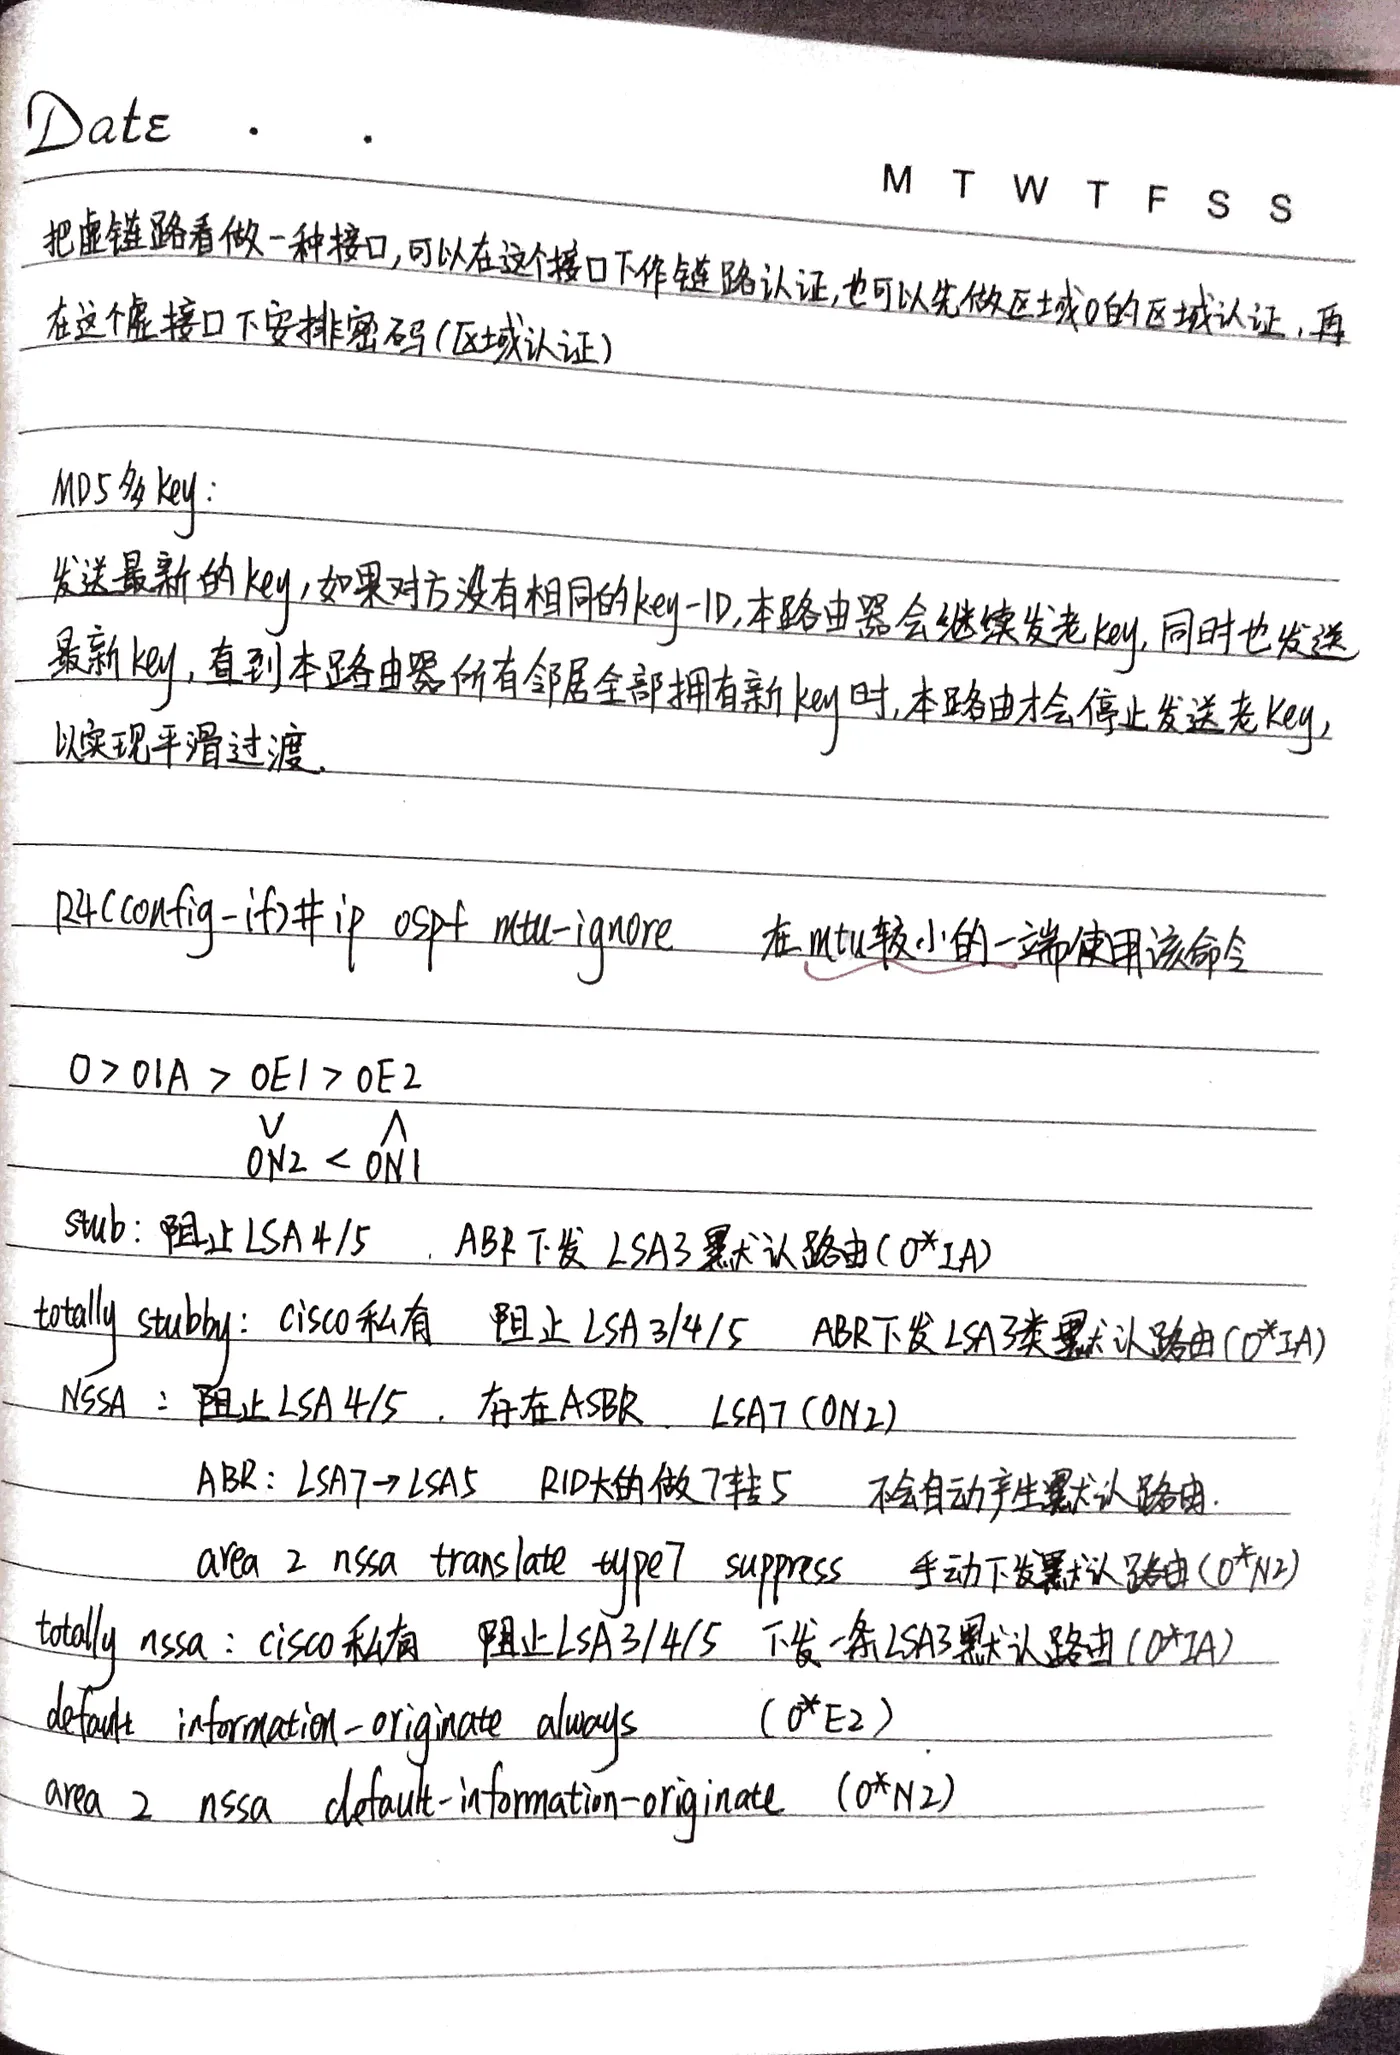 Date . .
M T W T F S S
把虚链路看做一种接口,可以在这个接口下作链路认证,也可以先做区域0的区域认证,再
在这个虚接口下安排密码(区域认证)
MD5多key:
发送最新的key,如果对方没有相同的key-ID,本路由器会继续发老key,同时也发送
最新key,直到本路由器所有邻居全部拥有新key时,本路由才会停止发送老key,
以实现平滑过渡.
R4(config-if)#ip ospf mtu-ignore 在mtu较小的一端使用该命令
O>OIA > OE1>OE2
∨ ∧
ON2 < ON1
stub: 阻止LSA4/5 . ABR下发 LSA3默认路由(O*IA)
totally stubby: cisco私有 阻止LSA3/4/5 ABR下发LSA3类默认路由(O*IA)
NSSA : 阻止LSA4/5 . 存在ASBR. LSA7(ON2)
ABR: LSA7→LSA5 RID大的做7转5 不会自动产生默认路由.
area 2 nssa translate type7 suppress 手动下发默认路由(O*N2)
totally nssa: cisco私有 阻止LSA3/4/5 下发一条LSA3默认路由(O*IA)
default information-originate always (O*E2)
area 2 nssa default-information-originate (O*N2)